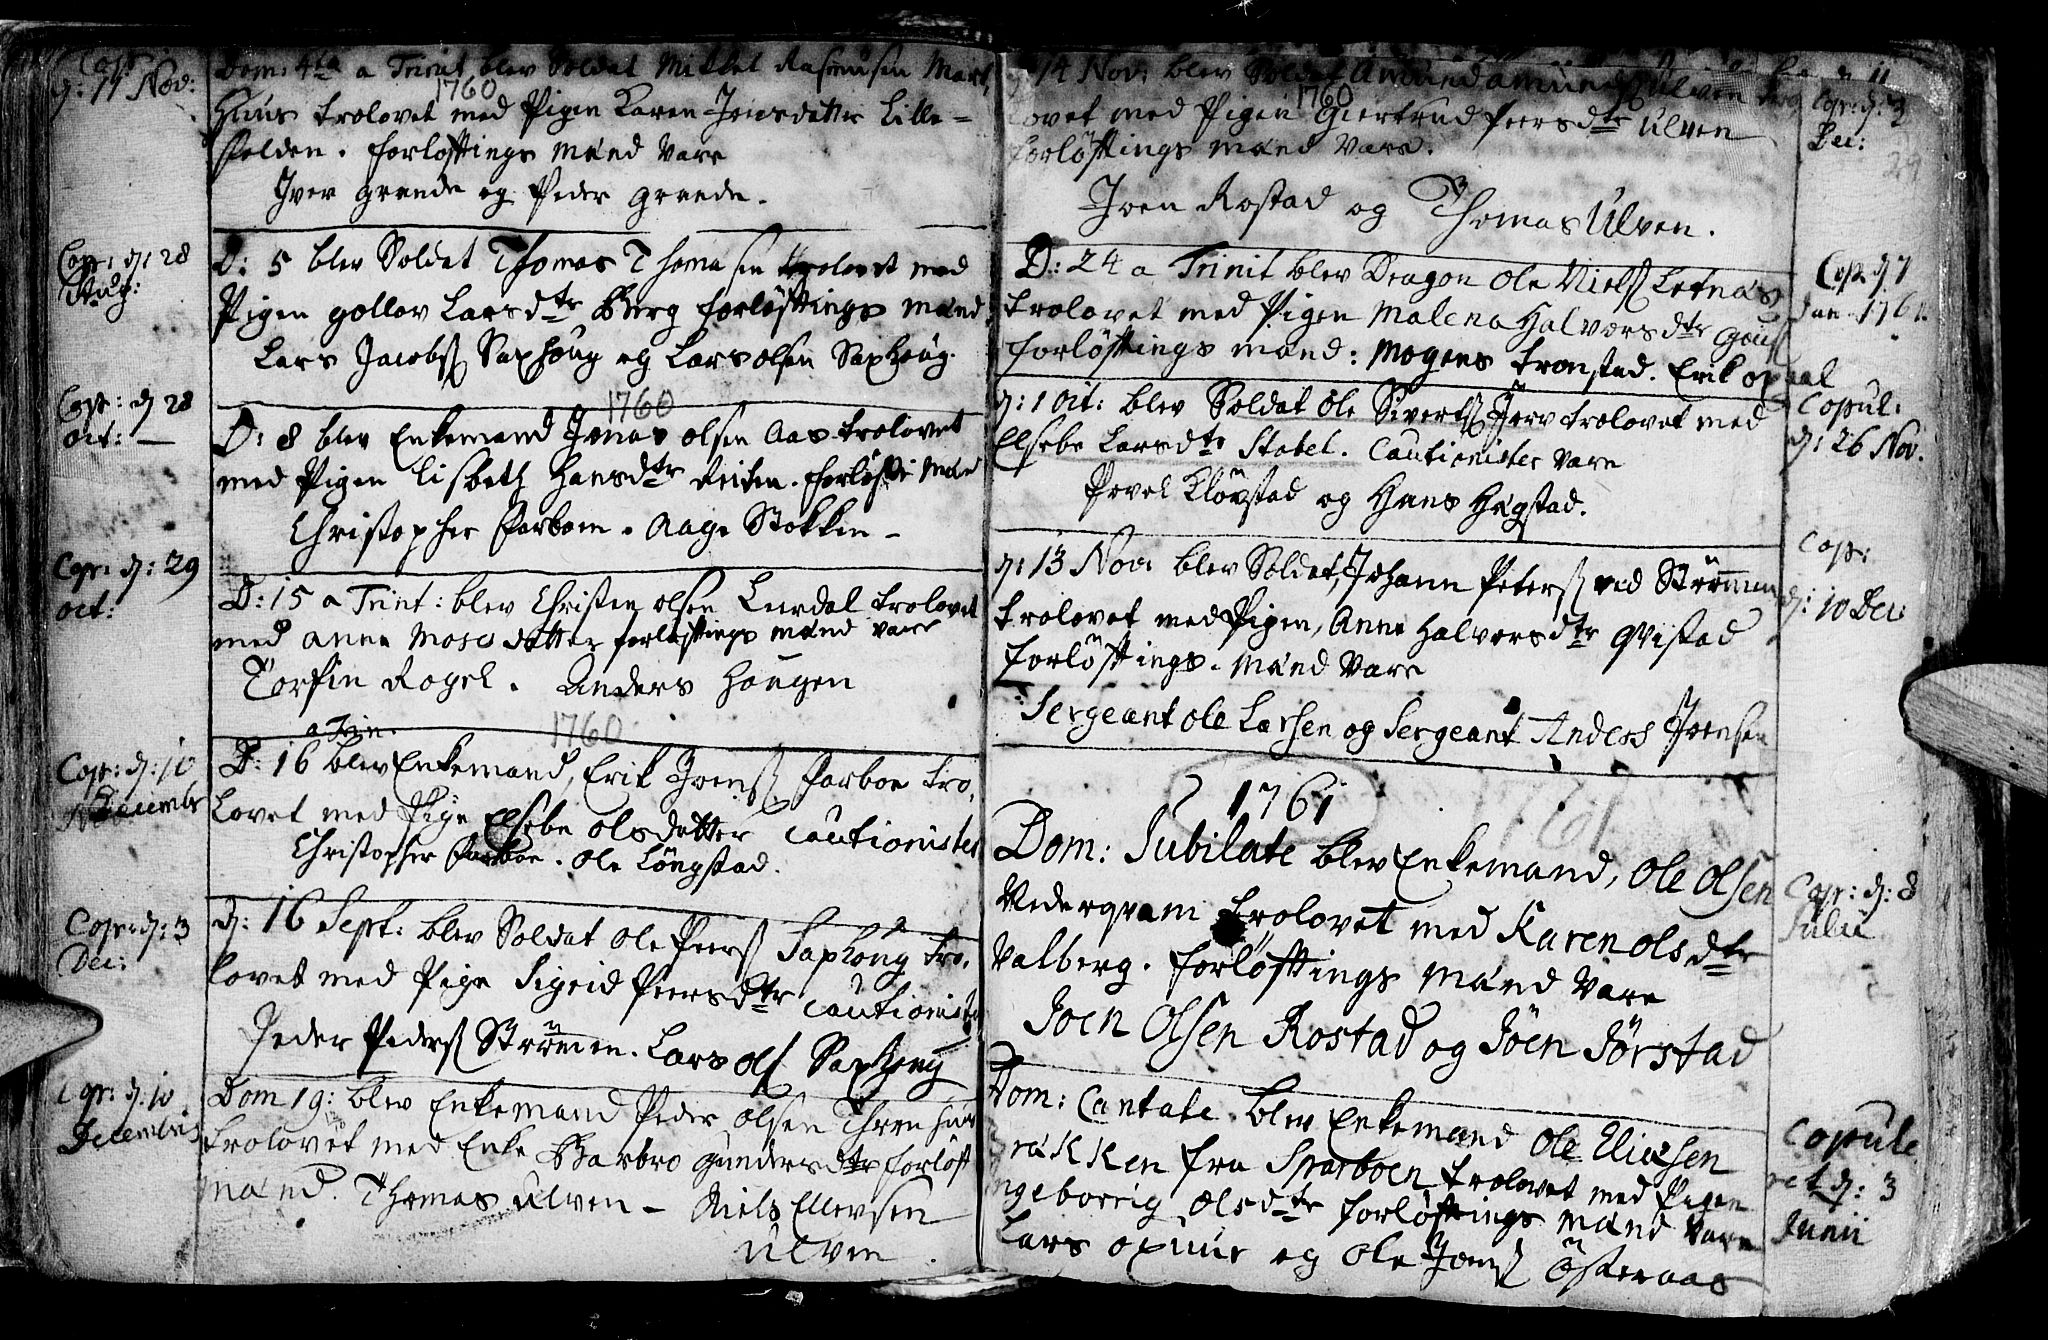 Cop:
d: 11 Nov:
Dom: 4ta a Trinit blev Soldat Mikkel Rasmusen Mart,
1760
Huus trolovet med Pigen Karen Joensdatter Lille-
Folden. Forløftings Mænd vare
Iver Grande og Peder Grande.
Cop: d: 28
Aug:
D: 5 blev Soldat Thomas Thomasen trolovet med
Pigen Gollov Larsdtr Berg Forløftings Mænd
Lars Jacobs Saxhoug og Lars Olsen Saxhoug.
Cop: d 28
Oct: —
1760
D: 8 blev Enkemand Jonas Olsen Aas trolovet
med Pigen Lisbeth Hansdtr Reiten. Forløft: Mænd
Christopher Parboen. Aage Stokken -
Cop: d: 29
oct:
D: 15 a Trint: blev Christen Olsen Leerdal trolovet
med Anne Mosesdatter forløftings Mænd vare
Torfin Rogel. Anders Hougen
1760
a Trin.
Cop: d: 10
Decembr
D: 16 blev Enkemand, Erik Joens Parboe tro,
lovet med Pige Elsebe Olsdatter Cautionister
Christopher Parboe. Ole Löngstad.
Cop: d: 3
Dec:
d: 16 Sept: blev Soldat Ole Peers Saxhoug tro,
lovet med Pige Sigrid Peersdtr Cautionister
Peder Peders Strømen. Lars Ols Saxhoug
Cop: d: 10
Decembris
Dom 19: blev Enkemand Peder Olsen
trolovet med Enke Barbro Gundersdtr Forløft
mænd. Thomas Ulven - Niels Ellevsen
Ulven.
14 Nov: blev Soldat Amund Amunds Ulven tro
1760
lovet med Pigen Giertrud Peersdtr Ulven
Forløftings Mænd vare.
Joen Rostad og Thomas Ulven.
Cop: d: 3
Dec:
29
D: 24 a Trinit blev Dragon Ole Niels Letnæs
trolovet med Pigen Malena Halvorsdtr
Forløftings mænd: Mogens Tronstad. Erik Opaal
Cop: d 7
Jan. 1761.
d: 1 Oct: blev Soldat Ole Siverts Jerv trolovet med
Elsebe Larsdtr Stabel. Cautionister vare
Povel Kløvstad og Hans Hægstad.
Copul:
d: 26 Nov.
d: 13 Nov: blev Soldat, Johann Peters ved Strømen
trolovet med Pigen, Anne Halvorsdtr Qvistad
Forløftings. Mænd vare
Sergeant Ole Larsen og Sergeant Anders Joensen
Cop:
d: 10 Dec:
1761
1761
Dom: Jubilate blev Enkemand, Ole Olsen
Vedergram trolovet med Karen Olsdtr
Valberg. Forløftings Mænd vare
Joen Olsen Rostad og Jöen Jörstad
Cop: d: 8
Julii
Dom: Cantate blev Enkemand Ole Eliæsen
Brakken fra Sparboen trolovet med Pigen
Ingeborrig Olsdtr Forløftings Mænd vare
Lars Opuur og Ole Joens Österaas
Copule
ret d: 3
Junii